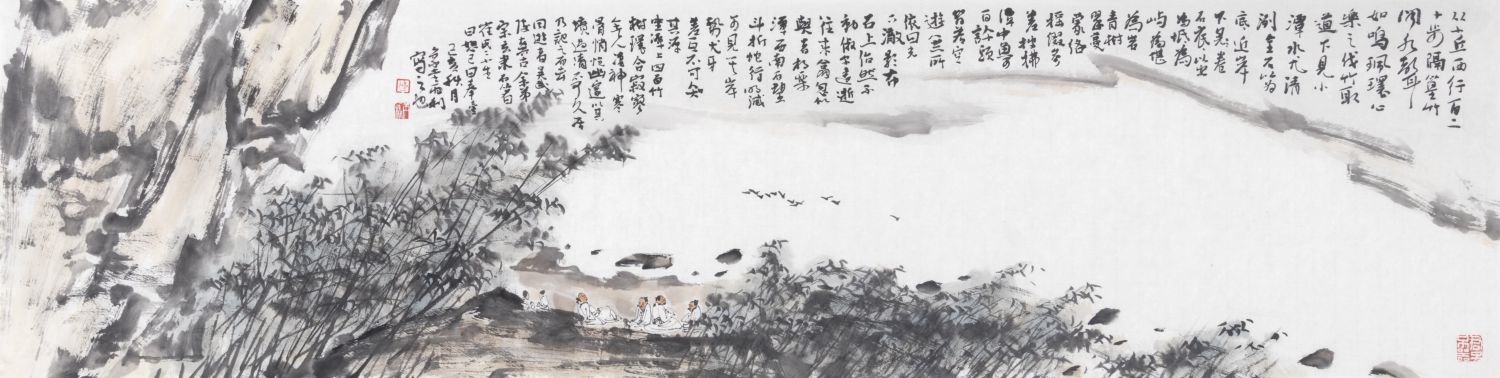 从小丘西行百二
十步隔篁竹
闻水声耳
如鸣珮環心
樂之伐竹取
道下見小
潭水尤清
冽全石以为
底近岸
卷
石底以出
为坻为
屿为嵁
為岩
青树
翠蔓
蒙络
摇缀参
差披拂
潭中鱼可
百許頭
皆若空
遊無所
依日光
下澈影布
石上佁然不
動俶尔遠逝
往来翕忽似
與游者相樂
潭西南而望
斗折蛇行明滅
可見其岸
勢犬牙
差互不可知
其源
坐潭上四面竹
树環合寂寥
無人凄神寒
骨悄愴幽邃以其
境過清不可久居
乃記之而去
同遊者吴武
陵龔古余弟
宗玄隶而从者
崔氏二小生
曰恕己曰奉壹
己亥秋月
寫之也